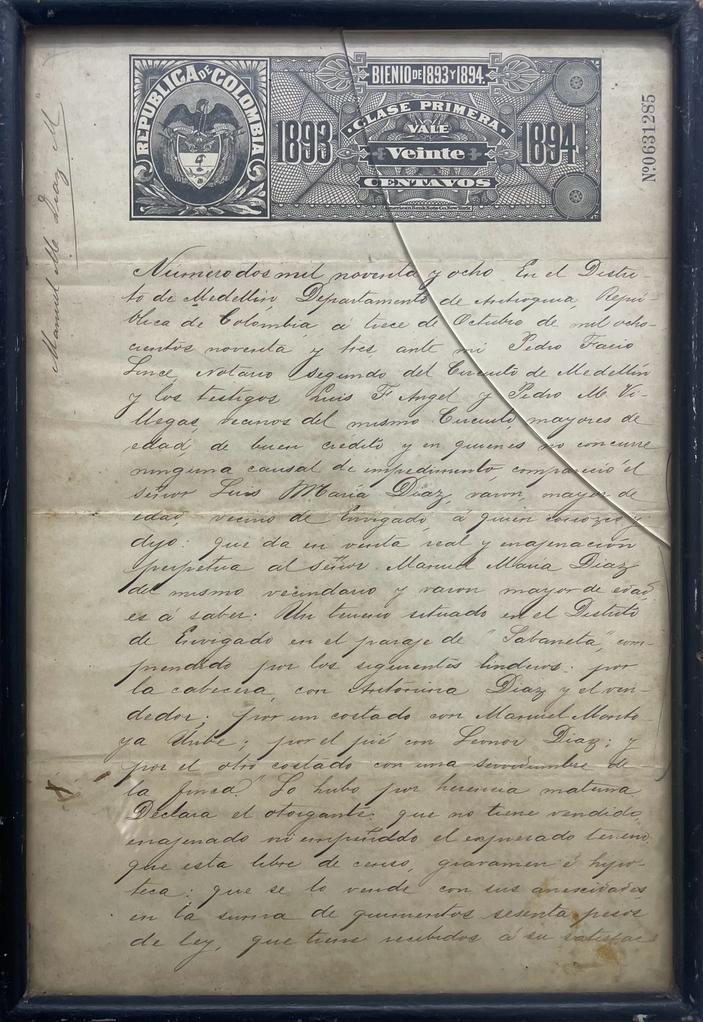 REPUBLICA DE COLOMBIA
BIENIO DE 1893 Y 1894.
CLASE PRIMERA
VALE
1893 Veinte 1894
CENTAVOS
Nº 0631285
Manuel Ma. Diaz M
Numero dos mil noventa y ocho En el Distri-
to de Medellin, Departamento de Antioquia, Repú-
blica de Colombia á trece de Octubre de mil ocho-
cientos noventa y tres, ante mi Pedro Facio
Lince, Notario segundo del Circuito de Medellin
y los testigos Luis F Angel y Pedro M. Vi-
llegas, vecinos del mismo Circuito, mayores de
edad, de buen crédito y en quienes no concurre
ninguna causal de impedimento, compareció el
señor Luis Maria Diaz, varon, mayor de
edad vecino de Envigado á quien conozco y
dijo: que da en venta real y enajenación
perpetua al señor Manuel Maria Diaz
del mismo vecindario y varon mayor de edad,
es á saber: Un terreno situado en el Distrito
de Envigado en el paraje de "Sabaneta", com-
prendido por los siguientes linderos: por
la cabecera, con Antonina Diaz y el ven-
dedor; por un costado con Manuel Monto-
ya Uribe; por el pié con Leonor Diaz; y
por el otro costado con una servidumbre de
la finca." Lo hubo por herencia materna
Declara el otorgante: que no tiene vendido,
enajenado ni empeñado el expresado terreno,
que esta libre de censo, gravamen é hipo-
teca: que se lo vende con sus anexidades
en la suma de quinientos sesenta pesos
de ley, que tiene recibidos á su satisfac